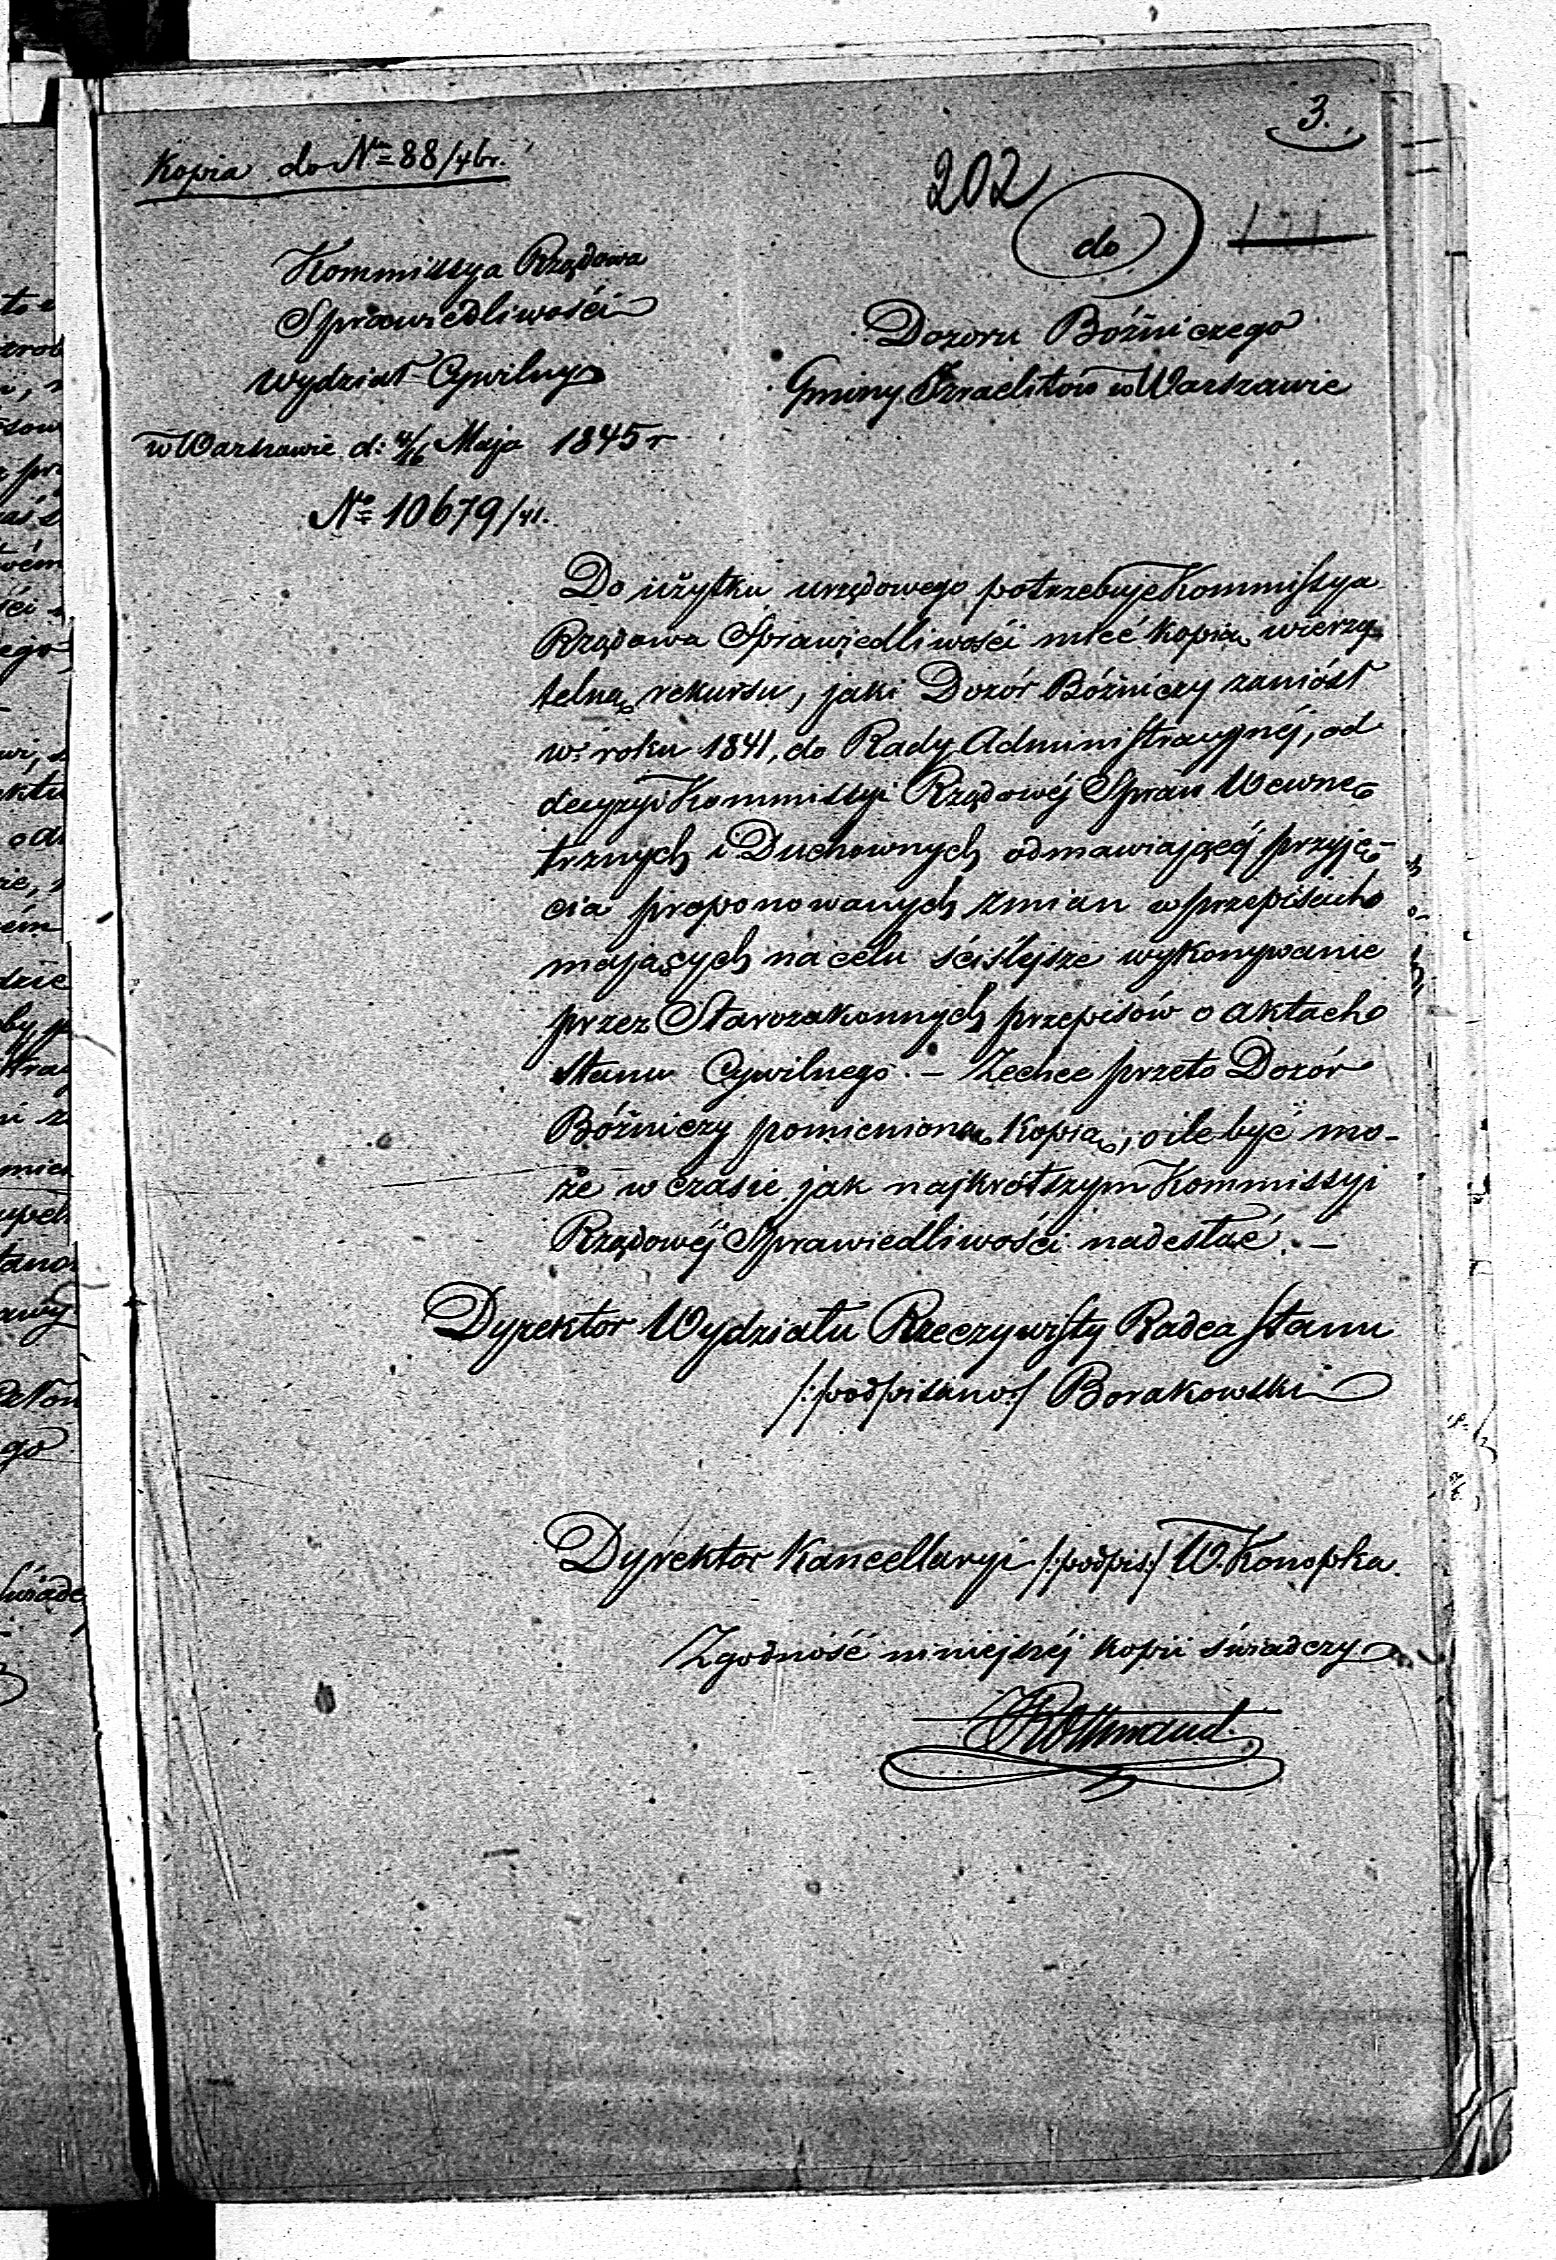 3.
Kopia do Nº 88/46r.
202
Kommissya Rządowa
Sprawiedliwości
Wydział Cywilny
w Warszawie d: 4/16 Maja 1845 r
Nº 10679/41.
do
Dozoru Bóżniczego
Gminy Izraelitów w Warszawie
Do użytku urzędowego potrzebuje Kommissya
Rządowa Sprawiedliwości mieć kopią wierzy-
telną rekursu, jaki Dozór Bóżniczy zaniósł
w roku 1841, do Rady Administracyjnéj, od
decyzyi Kommissyi Rządowéj Spraw Wewnę-
trznych i Duchownych odmawiającéj przyję-
cia proponowanych zmian w przepisach
mających na celu ściślejsze wykonywanie
przez Starozakonnych przepisów o aktach
stanu Cywilnego. – Zechce przeto Dozór
Bóżniczy pomienioną kopią, o ile być mo-
że w czasie jak najkrótszym Kommissyi
Rządowéj Sprawiedliwości nadesłać. –
Dyrektor Wydziału Rzeczywisty Radca Stanu
/:podpisano:/ Borakowski
Dyrektor Kancellaryi /:podpis:/ W. Konopka.
Zgodność niniejszéj kopii świadczy